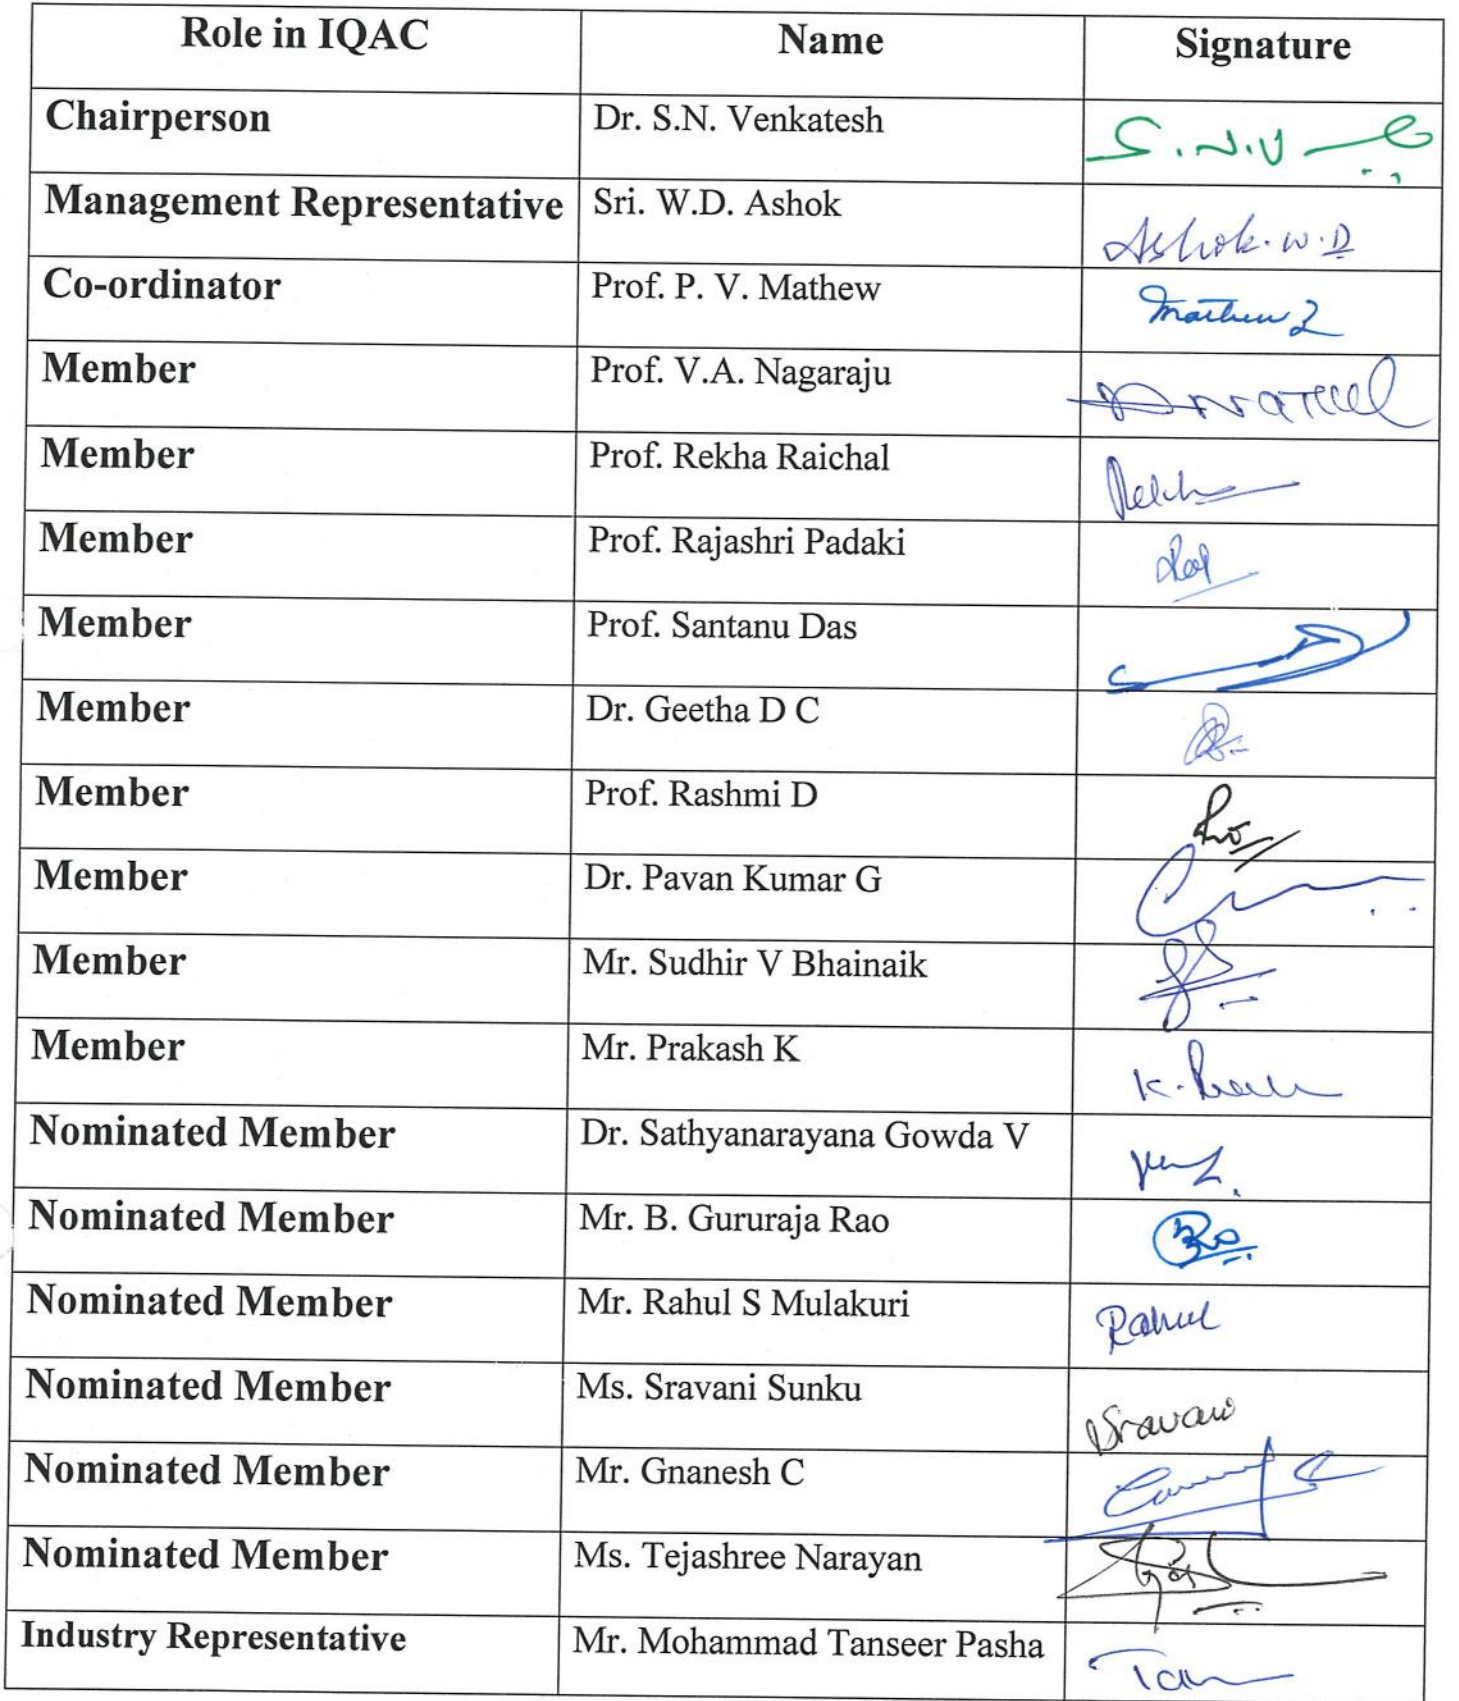 Role in IQAC Name Signature
Chairperson Dr. S.N. Venkatesh S.N.V
Management Representative Sri. W.D. Ashok Ashok.W.D
Co-ordinator Prof. P. V. Mathew Mathew
Member Prof. V.A. Nagaraju
Member Prof. Rekha Raichal Rekha
Member Prof. Rajashri Padaki
Member Prof. Santanu Das
Member Dr. Geetha D C
Member Prof. Rashmi D
Member Dr. Pavan Kumar G
Member Mr. Sudhir V Bhainaik
Member Mr. Prakash K
Nominated Member Dr. Sathyanarayana Gowda V
Nominated Member Mr. B. Gururaja Rao
Nominated Member Mr. Rahul S Mulakuri Rahul
Nominated Member Ms. Sravani Sunku Sravani
Nominated Member Mr. Gnanesh C
Nominated Member Ms. Tejashree Narayan
Industry Representative Mr. Mohammad Tanseer Pasha